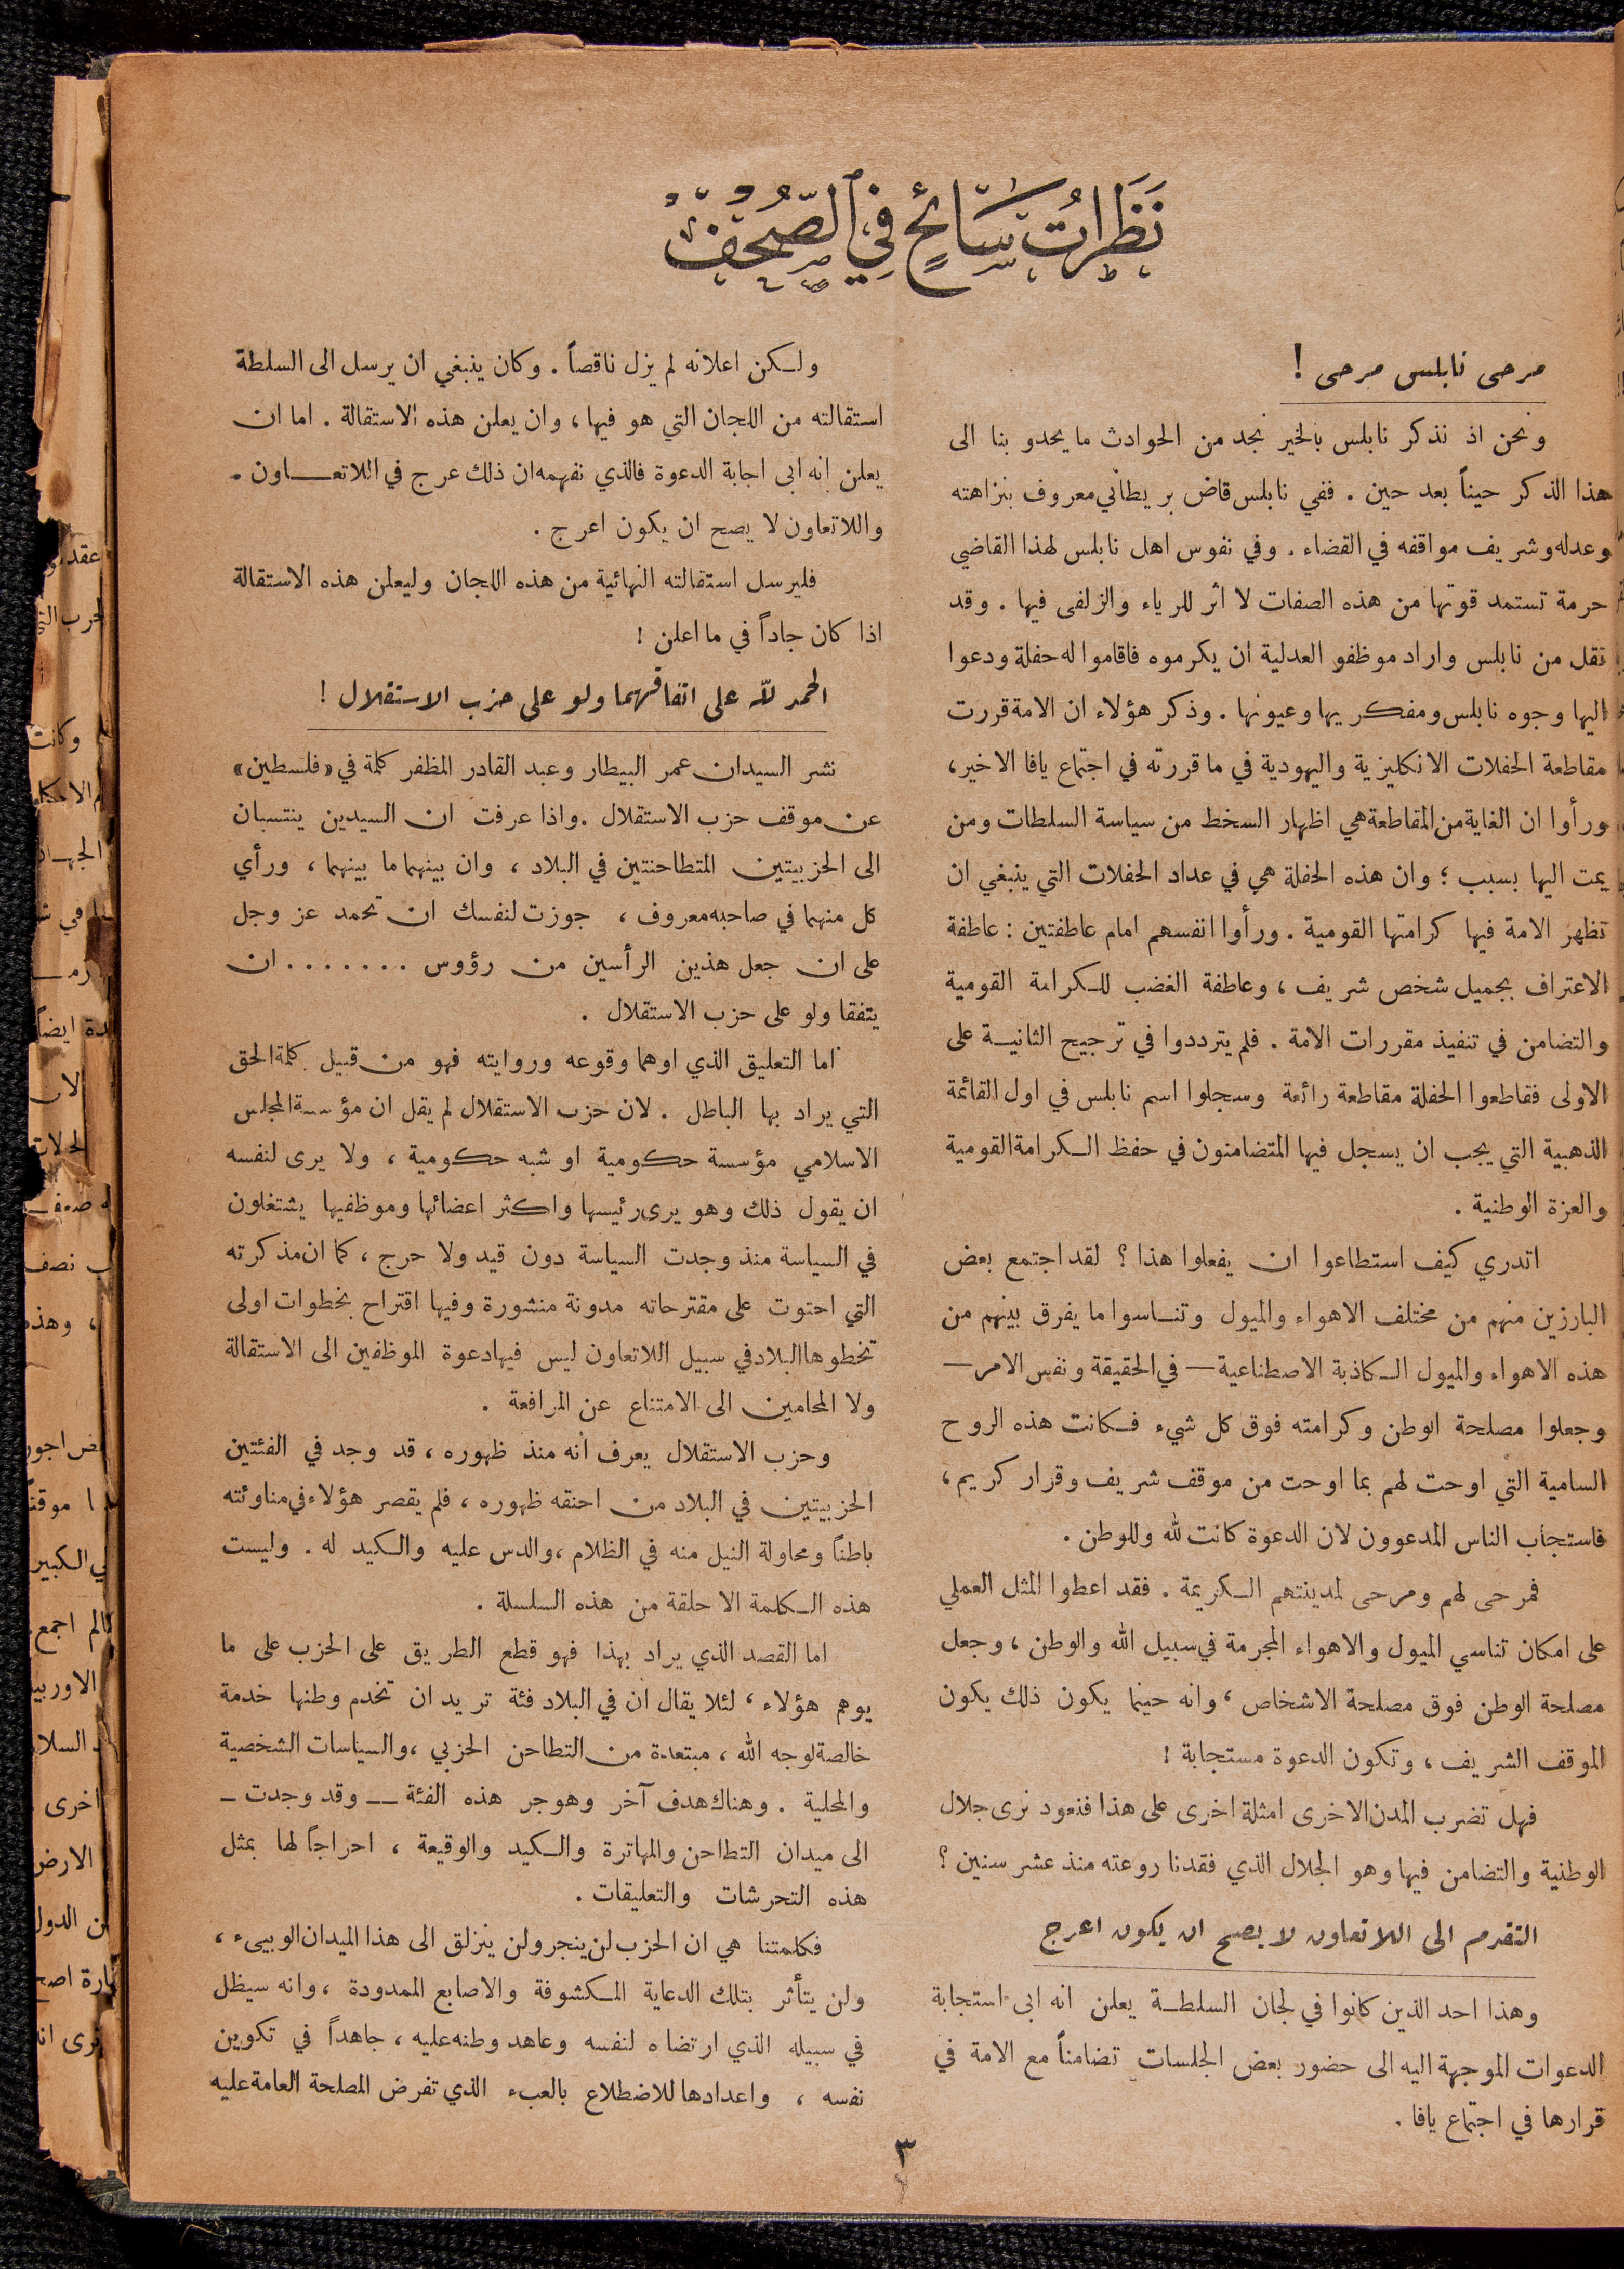 نَظَرَاتُ سَائحٍ فِي الصُّحُف
مرحى نابلس مرحى !
ونحن اذ نذكر نابلس بالخير نجد من الحوادث ما يحدو بنا الى
هذا الذكر حيناً بعد حين . ففي نابلس قاض بريطاني معروف بنزاهته
وعدله وشريف مواقفه في القضاء . وفي نفوس اهل نابلس لهذا القاضي
حرمة تستمد قوتها من هذه الصفات لا اثر للرياء والزلفى فيها . وقد
نقل من نابلس واراد موظفو العدلية ان يكرموه فاقاموا له حفلة ودعوا
اليها وجوه نابلس ومفكريها وعيونها . وذكر هؤلاء ان الامة قررت
مقاطعة الحفلات الانكليزية واليهودية في ما قررته في اجتماع يافا الاخير،
ورأوا ان الغاية من المقاطعة هي اظهار السخط من سياسة السلطات ومن
يمت اليها بسبب ؛ وان هذه الحفلة هي في عداد الحفلات التي ينبغي ان
تظهر الامة فيها كرامتها القومية . ورأوا انفسهم امام عاطفتين : عاطفة
الاعتراف بجميل شخص شريف ، وعاطفة الغضب للكرامة القومية
والتضامن في تنفيذ مقررات الامة . فلم يترددوا في ترجيح الثانية على
الاولى فقاطعوا الحفلة مقاطعة رائعة وسجلوا اسم نابلس في اول القائمة
الذهبية التي يجب ان يسجل فيها المتضامنون في حفظ الكرامة القومية
والعزة الوطنية .
اتدري كيف استطاعوا ان يفعلوا هذا ؟ لقد اجتمع بعض
البارزين منهم من مختلف الاهواء والميول وتناسوا ما يفرق بينهم من
هذه الاهواء والميول الكاذبة الاصطناعية — في الحقيقة ونفس الامر —
وجعلوا مصلحة الوطن وكرامته فوق كل شيء فكانت هذه الروح
السامية التي اوحت لهم بما اوحت من موقف شريف وقرار كريم ،
فاستجاب الناس المدعوون لان الدعوة كانت لله وللوطن .
فمرحى لهم ومرحى لمدينتهم الكريمة . فقد اعطوا المثل العملي
على امكان تناسي الميول والاهواء المجرمة في سبيل الله والوطن ، وجعل
مصلحة الوطن فوق مصلحة الاشخاص ، وانه حينما يكون ذلك يكون
الموقف الشريف ، وتكون الدعوة مستجابة !
فهل تضرب المدن الاخرى امثلة اخرى على هذا فنعود نرى جلال
الوطنية والتضامن فيها وهو الجلال الذي فقدنا روعته منذ عشر سنين ؟
التقدم الى اللاتعاون لا يصح ان يكون اعرج
وهذا احد الذين كانوا في لجان السلطة يعلن انه ابى استجابة
الدعوات الموجهة اليه الى حضور بعض الجلسات تضامناً مع الامة في
قرارها في اجتماع يافا .
ولكن اعلانه لم يزل ناقصاً . وكان ينبغي ان يرسل الى السلطة
استقالته من اللجان التي هو فيها ، وان يعلن هذه الاستقالة . اما ان
يعلن انه ابى اجابة الدعوة فالذي نفهمه ان ذلك عرج في اللاتعاون .
واللاتعاون لا يصح ان يكون اعرج .
فليرسل استقالته النهائية من هذه اللجان وليعلن هذه الاستقالة
اذا كان جاداً في ما اعلن !
الحمد لله على اتفاقهما ولو على حزب الاستقلال !
نشر السيدان عمر البيطار وعبد القادر المظفر كلمة في «فلسطين»
عن موقف حزب الاستقلال . واذا عرفت ان السيدين ينتسبان
الى الحزبيتين المتطاحنتين في البلاد ، وان بينهما ما بينهما ، ورأي
كل منهما في صاحبه معروف ، جوزت لنفسك ان تحمد عز وجل
على ان جعل هذين الرأسين من رؤوس ....... ان
يتفقا ولو على حزب الاستقلال .
اما التعليق الذي اوهما وقوعه وروايته فهو من قبيل كلمة الحق
التي يراد بها الباطل . لان حزب الاستقلال لم يقل ان مؤسسة المجلس
الاسلامي مؤسسة حكومية او شبه حكومية ، ولا يرى لنفسه
ان يقول ذلك وهو يرى رئيسها واكثر اعضائها وموظفيها يشتغلون
في السياسة منذ وجدت السياسة دون قيد ولا حرج ، كما ان مذكرته
التي احتوت على مقترحاته مدونة منشورة وفيها اقتراح بخطوات اولى
تخطوها البلاد في سبيل اللاتعاون ليس فيها دعوة الموظفين الى الاستقالة
ولا المحامين الى الامتناع عن المرافعة .
وحزب الاستقلال يعرف أنه منذ ظهوره ، قد وجد في الفئتين
الحزبيتين في البلاد من احنقه ظهوره ، فلم يقصر هؤلاء في مناوئته
باطناً ومحاولة النيل منه في الظلام ، والدس عليه والكيد له . وليست
هذه الكلمة الا حلقة من هذه السلسلة .
اما القصد الذي يراد بهذا فهو قطع الطريق على الحزب على ما
يوهم هؤلاء ، لئلا يقال ان في البلاد فئة تريد ان تخدم وطنها خدمة
خالصة لوجه الله ، مبتعدة من التطاحن الحزبي ، والسياسات الشخصية
والمحلية . وهناك هدف آخر وهو جر هذه الفئة — وقد وجدت —
الى ميدان التطاحن والمهاترة والكيد والوقيعة ، احراجاً لها بمثل
هذه التحرشات والتعليقات .
فكلمتنا هي ان الحزب لن ينجر ولن ينزلق الى هذا الميدان الوبيء ،
ولن يتأثر بتلك الدعاية المكشوفة والاصابع الممدودة ، وانه سيظل
في سبيله الذي ارتضاه لنفسه وعاهد وطنه عليه ، جاهداً في تكوين
نفسه ، واعدادها للاضطلاع بالعبء الذي تفرض المصلحة العامة عليه
٣